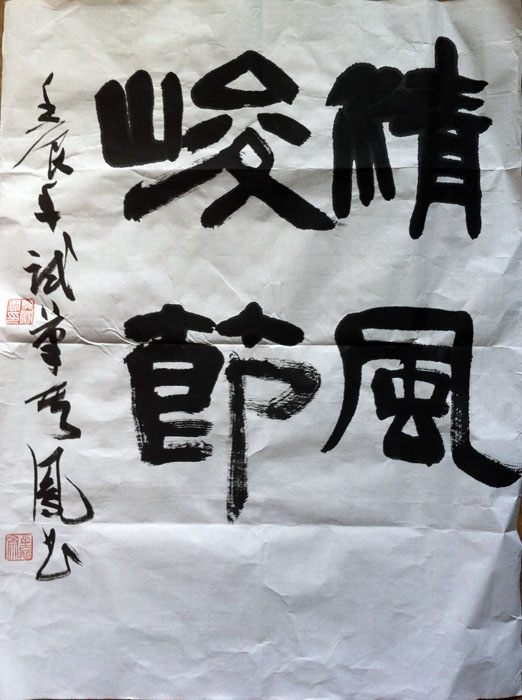 清風
峻節
壬辰年試筆鳳书